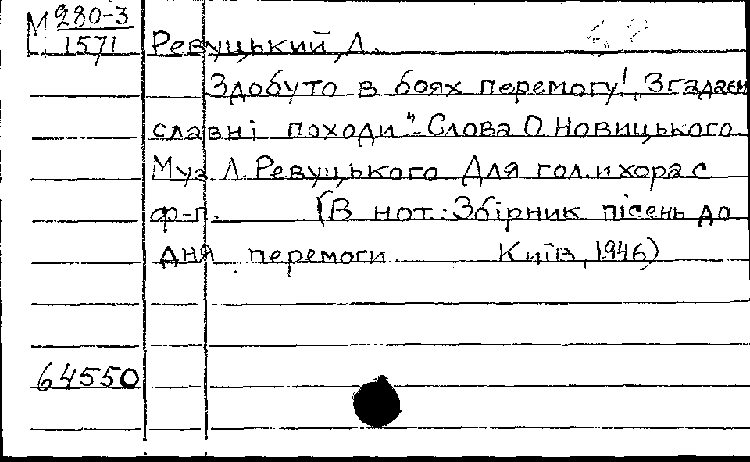 М 280-3
1571
Ревуцький, Л.
Здобуто в боях перемогу! „Згадаєм
славні походи" Слова О. Новицького
Муз. Л. Ревуцького Для гол. и хора с
ф-п. (В нот: Збірник пісень до
дня перемоги Київ, 1946)
64550